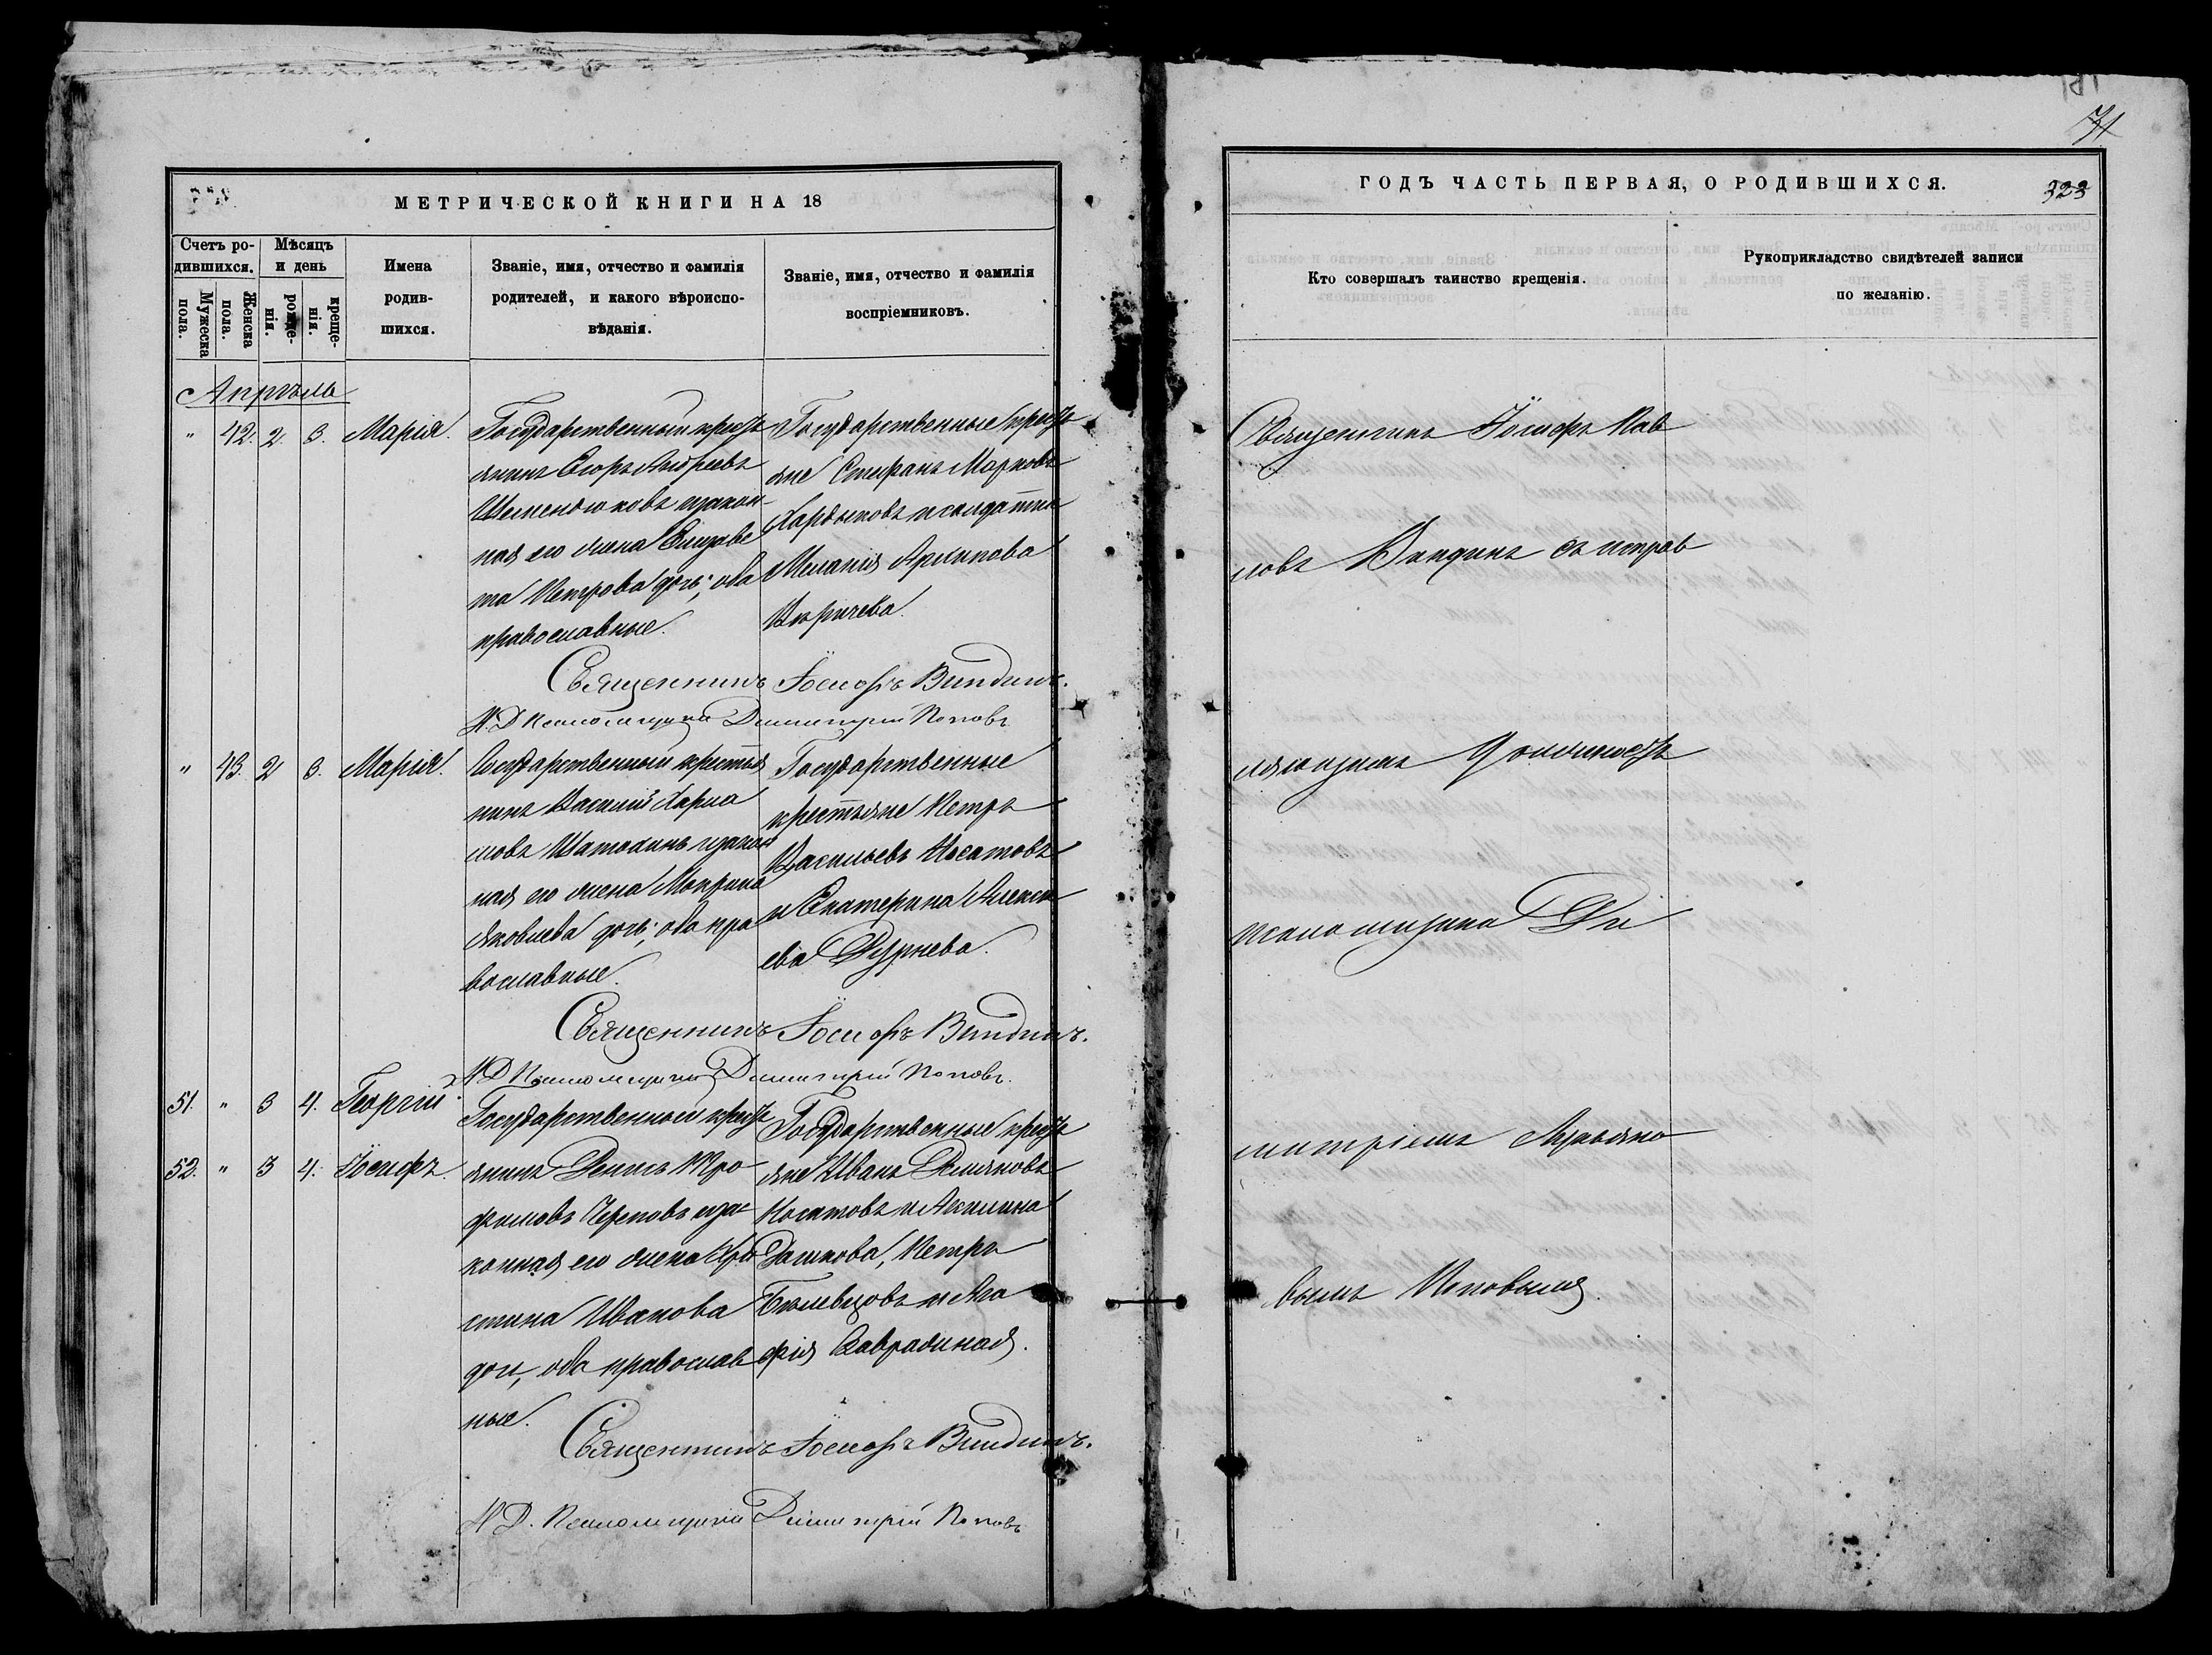 71
МЕТРИЧЕСКОЙ КНИГИ НА 18
Счетъ ро-
дившихся.
Мужеска
пола.
Женска
пола.
Мѣсяцъ
и день
рожде-
нія.
креще-
нія.
Имена
родив-
шихся.
Званіе, имя, отчество и фамилія
родителей, и какого вѣроиспо-
вѣданія.
Званіе, имя, отчество и фамилія
воспріемниковъ.
Апрѣль
" 42. 2. 3. Марія.
Государственный кресть
янинъ Егоръ Андреевъ
и закон
ная его жена Елизаве
та Петрова дочь; оба
православные.
Государственные кресть
яне Стефанъ Марковъ
и солдатка
Меланія Архипова
Священникъ Іосифъ Виндинъ.
И.Д. Псаломщика Димитрій Поповъ
" 43. 2 3. Марія.
Государственный крестья
нинъ Василій Харла
мовъ Шатохинъ и закон
ная его жена Макрина
Яковлева дочь; оба пра
вославные.
Государственные
крестьяне Петръ
Васильевъ Носатовъ
и Екатерина Алексѣ
ева Дурнева.
Священникъ Іосифъ Виндинъ.
И.Д. Псаломщика Димитрій Поповъ.
51. " 3 4. Георгій.
52. " 3 4. Іосифъ.
Государственный кресть
янинъ Денисъ Тро
фимовъ Череповъ и за
конная его жена Хри
стина Иванова
дочь, оба православ
ные.
Государственные кресть
яне Иванъ Демьяновъ
Носатовъ и Акилина
Дашкова, Петръ
Бѣлевцовъ и Ага
фія
Священникъ Іосифъ Виндинъ.
И.Д. Псаломщика Димитрій Поповъ
ГОДЪ ЧАСТЬ ПЕРВАЯ, О РОДИВШИХСЯ.
323
Кто совершалъ таинство крещенія.
Рукоприкладство свидѣтелей записи
по желанію.
Священникъ Іосифъ Пав
ловъ Виндинъ съ исправ
ляющимъ должность
псаломщика Ди
митріемъ
вымъ Поповымъ.